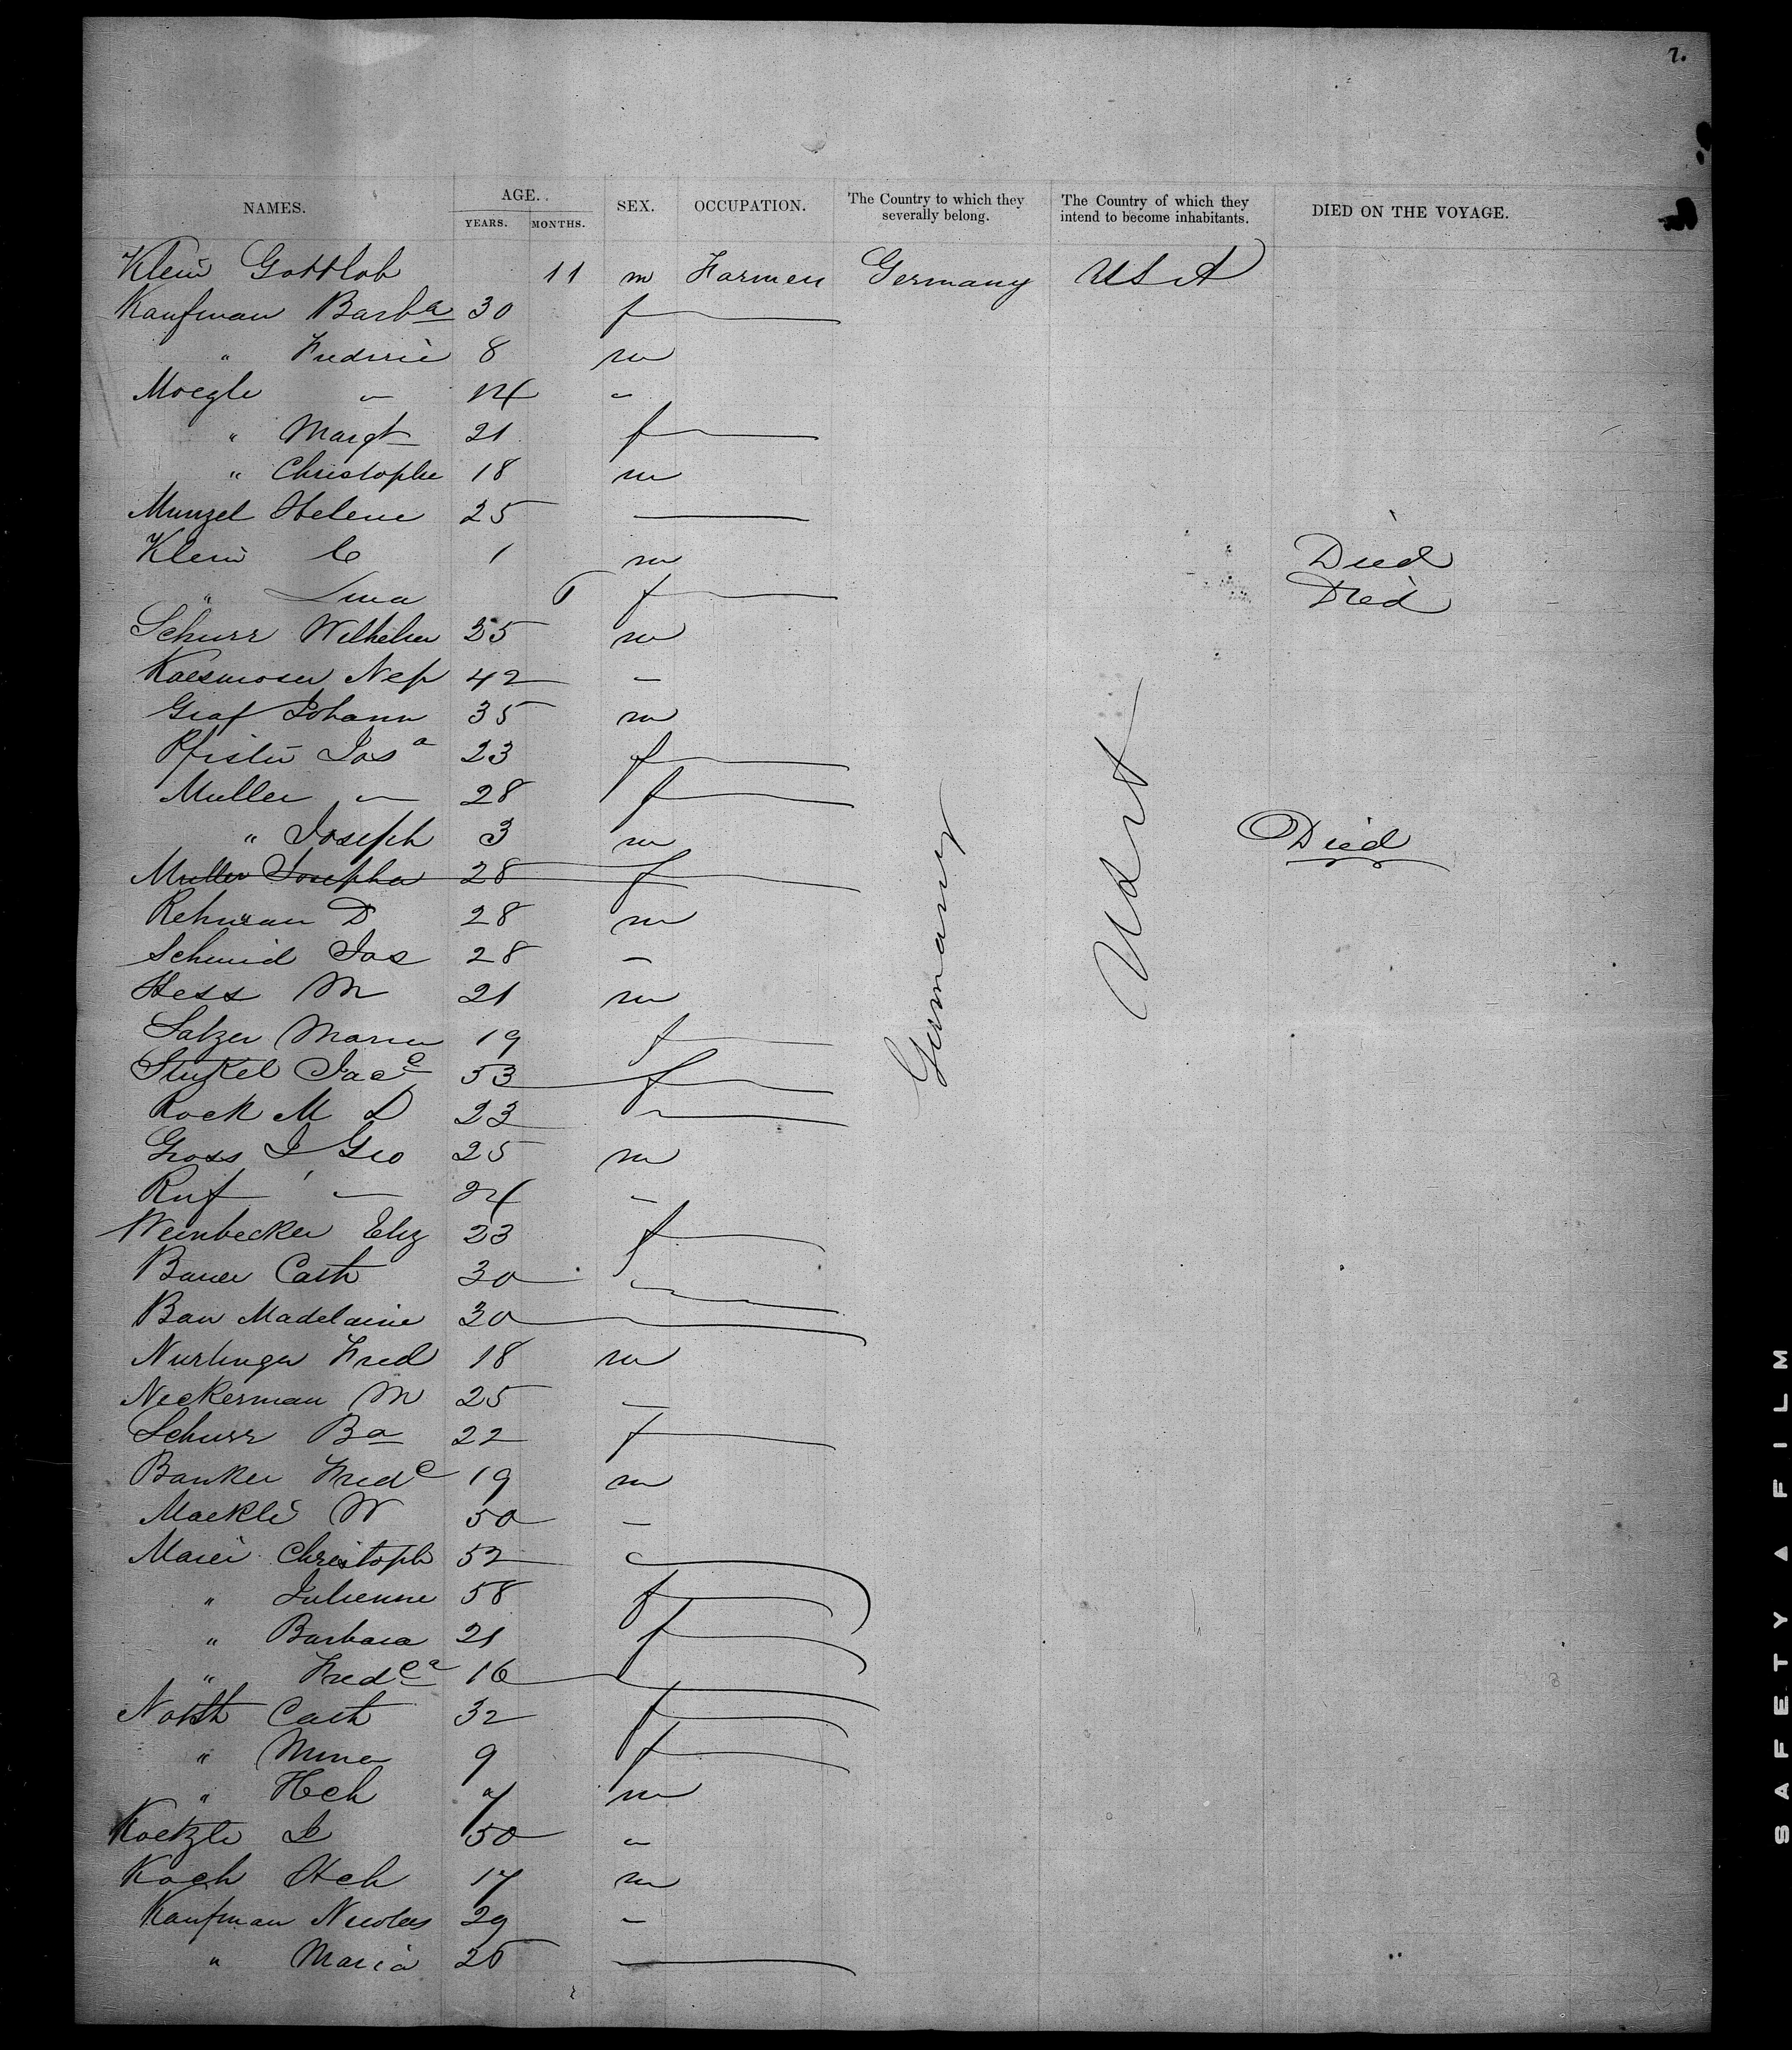 7.
NAMES. AGE. YEARS. MONTHS. SEX. OCCUPATION. The Country to which they severally belong. The Country of which they intend to become inhabitants. DIED ON THE VOYAGE.
Klein Gottlob 11 m Farmer Germany USA
Kaufman Barba 30 f
" Frederic 8 m
Moegle " 14 "
" Margt 21 f
" Christophe 18 m
Munzel Helene 25
Klein C 1 m Died
" Lina 6 f Died
Schurr Wilhelm 35 m
Nep 42 –
Graf Johann 35 m
Pfister Josa 23 f
Muller " 28 f
" Joseph 3 m Died
Muller Josepha 28 f
Rehman D 28 m
Schmid Jos 28 –
Hess M 21 m
Salzer Maria 19 f
Stukel Jacc 53 f
Rock M D 23 "
Gross J Geo 25 m
Ruf " 24 –
Weinbecker Eliz 23 f
Bauer Cath 30 "
Bau Madelaine 30
Nurlinger Fred 18 m
Neckerman M 25 –
Schurr Ba 22 f
Banker Fredc 19 m
Maekle W 50 –
Maier Christoph 52 "
" Julienne 58 f
" Barbara 21 f
" Fredca 16
North Cath 32 f
" Mina 9 f
" Hch 7 m
Koetzle J 50 "
Koch Hch 17 m
Kaufman Nicolas 29 –
" Maria 25
Germany
USA
SAFETY ▲ FILM